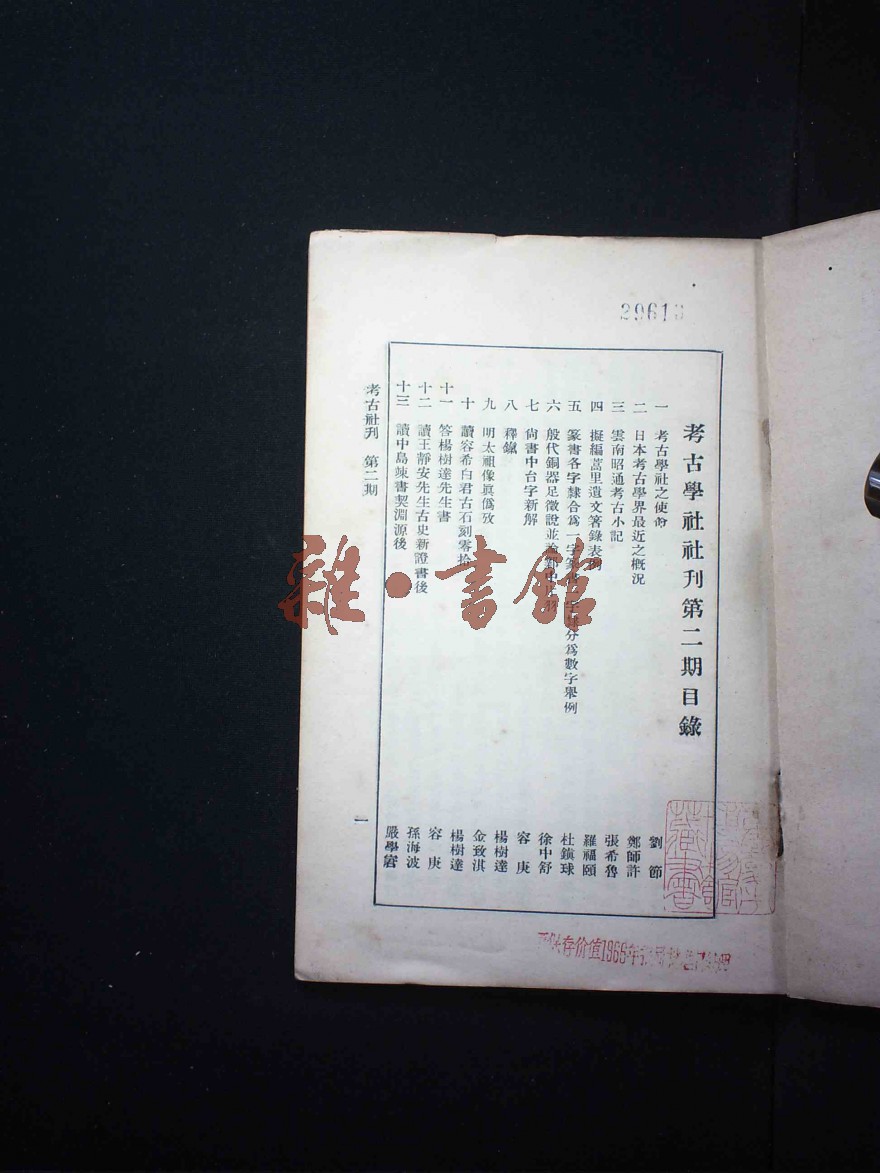 29613
考古學社社刊第二期目錄
一 考古學社之使命 劉節
二 日本考古學界最近之概況 鄭師許
三 雲南昭通考古小記 張希魯
四 擬編蒿里遺文箸錄表例 羅福頤
五 篆書各字隸合爲一字篆書一字隸分爲數字舉例 杜鎭球
六 般代銅器足徵說並論 徐中舒
七 尙書中台字新解 容庚
八 釋鐵 楊樹達
九 明太祖像眞僞攷 金致淇
十 讀容希白君古石刻零拾 楊樹達
十一 答楊樹達先生書 容庚
十二 讀王靜安先生古史新證書後 孫海波
十三 讀中島竦書契淵源後 嚴學窘
考古社刊 第二期
一
雜·書館
存价值1966年